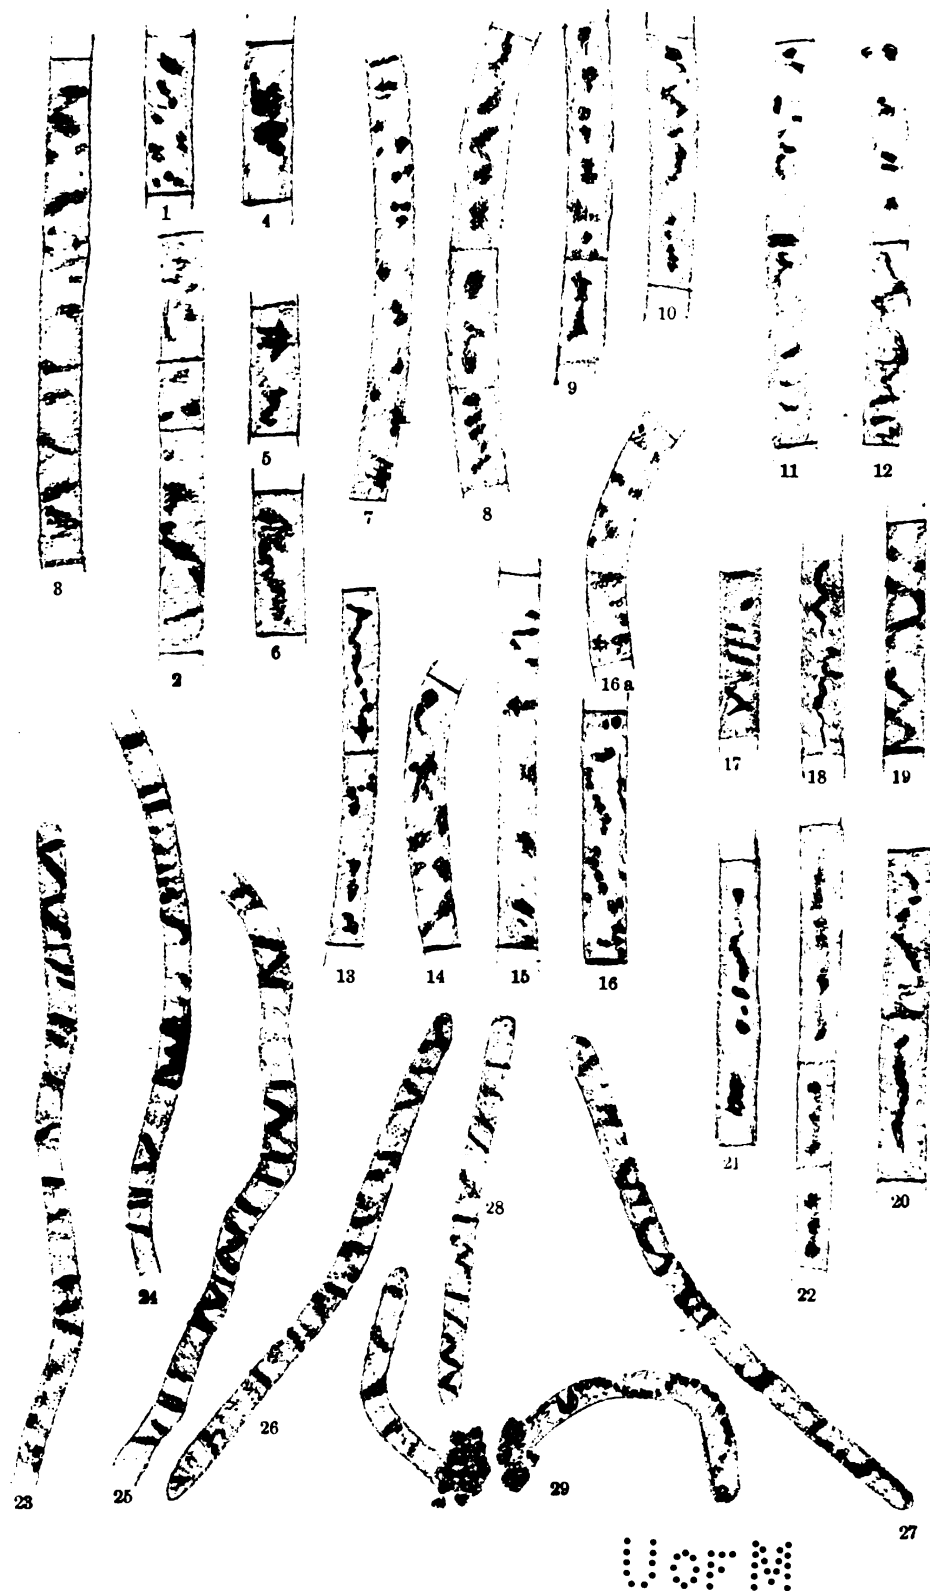 1
4
10
9
5
11
12
7
8
3
6
2
16a
17
18
19
13
14
15
16
21
20
28
22
24
26
23
25
29
27
U OF M